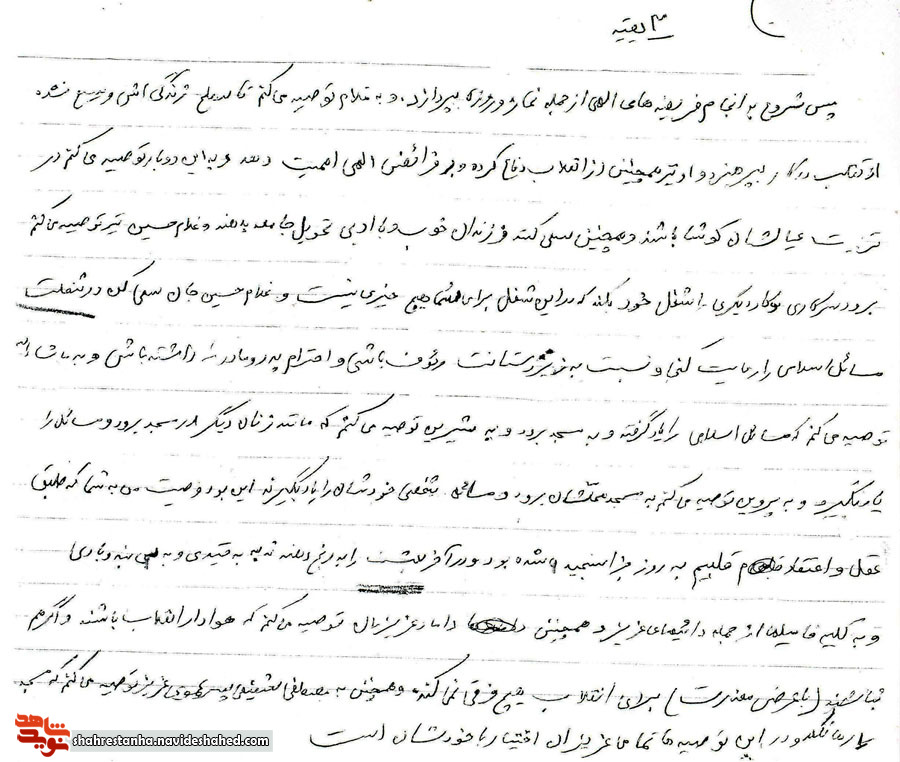 بقیه
پس شروع به انجام فریضه های الهی از جمله نماز و روزه بپردازد، و به غلام توصیه می کنم تا سطح زندگی اش وسیع نشده
از بپرهیزد و او نیز همچنین از انقلاب دفاع کرده و بر فرائض الهی اهمیت دهد و به این دو بار توصیه می کنم در
تربیت عیالشان کوشا باشند و همچنین سعی کنند فرزندان خوب و با ادبی تحویل جامعه بدهند و غلام حسین نیز توصیه می کنم
برود سر کاری و کار دیگری را شغل خود بکند که در این شغل برای شما هیچ چیزی نیست و غلام حسین جان سعی کن در شغلت
مسائل اسلامی را رعایت کنی و نسبت به زیردستانت رئوف باشی و احترام پدر و مادر را داشته باشی و به
توصیه می کنم که مسائل اسلامی را یاد گرفته و به مسجد برود و به شیرین توصیه می کنم که مانند زنان دیگر در مسجد برود و مسائل را
یاد بگیرد و به پروین توصیه می کنم به مسجد محلشان برود و مسائل شخصی خودشان را یاد بگیرند این بود وصیت من به شما که طبق
عقل و اعتقاد قلبیم به روز جزا سنجیده شده بود و در آخر بهشت را به رنج دهند نه به بی قیدی و به بی بند و باری
و به کلیه فامیلها از جمله دائیهای عزیز و همچنین داماد عزیزمان توصیه می کنم که هوادار انقلاب باشند و اگر هم
نباشند (با عرض معذرت) برای انقلاب هیچ فرقی نمی کند، و همچنین به مصطفی پسر عموی عزیز توصیه می کنم که مسجد
را رها نکند و در این توصیه ها تمام عزیزان اختیار با خودشان است
نوید شاهد
shahrestanha.navideshahed.com